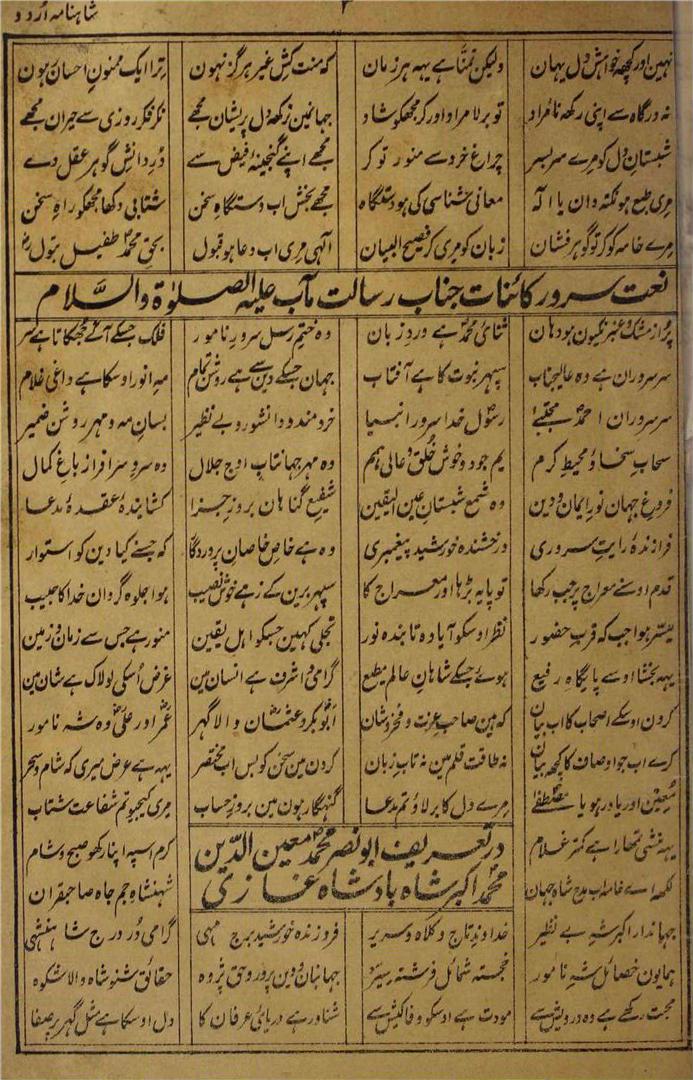 شاہنامہ اُردو
نہین اور کچھہ خواہش دل یہان ولیکن تمنّا ہے یہہ ہر زمان کہ منت کش غیر ہرگز نہون ترا ایک ممنون احسان ہون
نہ درگاہ سے اپنی رکھہ نامراد تو بر لا مراد اور کر مجھکو شاد جہانمین نرکھہ دل پریشان مجھے نکر فکر روزی سے حیران مجھے
شبستان دل کو مرے سر بسر چراغ خرد سے منور تو کر مجھے اپنے گنجینۂ فیض سے دُرِ دانش گوہر عقل دے
مری طبع ہو نکتہ دان یا الہ معانی شناسی کی ہو دستگاہ مجھے بخش اب دستگاہ سخن شتابی دکھا مجھکو راہ سخن
مرے خامہ کو کر تو گوہر فشان زبان کو مری کر فصیح البیان الٰہی مری اب دعا ہو قبول بحق محمد طفیل بتول
نعت سرور کائنات جناب رسالت مآب علیہ الصلوٰۃ والسلام
پُر از مشک و عنبر نکیون ہو دہان ثنائ محمد ہے ورد زبان وہ ختم رسل سرور نامور فلک جسکے آگے جھکاتا ہے سر
سر سروران ہے وہ عالیجناب سپہر نبوت کا ہے آفتاب جہان جسکے دین سے ہے روشن تمام مہ انور اوسکا ہے داغی غلام
سر سروران احمد مجتبےٰ رسول خدا سرور انبیا خردمند و دانشور و بے نظیر بسان مہ و مہر روشن ضمیر
سحاب سخا و محیط کرم یم جود و خوش خُلق و عالی ہمم وہ مہر جہانتاب اوج جلال وہ سرو سرافراز باغ کمال
فروغ جہان نور ایمان و دین وہ شمع شبستان عین الیقین شفیع گناہان بروز جزا کشایندۂ عقدۂ مدعا
فرازندۂ رایت سروری درخشندہ خورشید پیغمبری وہ ہے خاص خاصان پروردگار کہ جسنے کیا دین کو استوار
قدم اوسنے معراج پر جب رکھا تو پایہ بڑہا اور معراج کا سپہر برین کے زہے خوش نصیب ہوا جلوہ گر وان خدا کا حبیب
میسر ہوا جب کہ قرب حضور نظر اوسکو آیا وہ تابندہ نور تجلی کہین جسکو اہل یقین منور ہے جس سے زمان و زمین
یہہ بخشا اوسے پایگاہ رفیع ہوئے جسکے شاہان عالم مطیع گرامی و اشرف ہے انسان مین غرض اُسکی لولاک ہے شان مین
کرون اوسکے اصحاب کا اب بیان کہ ہین صاحب عزت و فخر و شان ابوبکر و عثمان والا گہر عمر اور علی وہ شہ نامور
کرے اب جو اوصاف کا کچھہ بیان نہ طاقت قلم مین نہ تاب زبان کرون مین سخن کو بس اب مختصر یہہ ہے عرض میری کہ شام و سحر
معین اور یاور ہو یا مصطفےٰ مرے دل کا بر لاؤ تم مدعا گنہگار ہون مین بروز حساب مری کیجیو تم شفاعت شتاب
یہہ منشی تمھارا ہے کمتر غلام کرم اسپہ اپنا رکھو صبح و شام
در تعریف ابو نصر محمد معین الدّین
محمد اکبر شاہ پادشاہ غازی
لکھہ اے خامہ اب مدح شاہ جہان شہنشاہ جم جاہ صاحبقران
جہاندار اکبر شہ بے نظیر خداوند تاج و کلاہ و سریر فروزندہ خورشید برج مہی گرامی دُرِ درج شاہنشہی
ہمایون خصائل شہ نامور خجستہ شمائل فرشتہ سیر جہانبان و دین پرور و حق پژوہ حقائق شنو شاہ والا شکوہ
محبت رکھے ہے وہ درویش سے مودت ہے اوسکو وفا کیش سے شناور ہے دریائ عرفان کا دل اوسکا ہے مثل گہر پر صفا